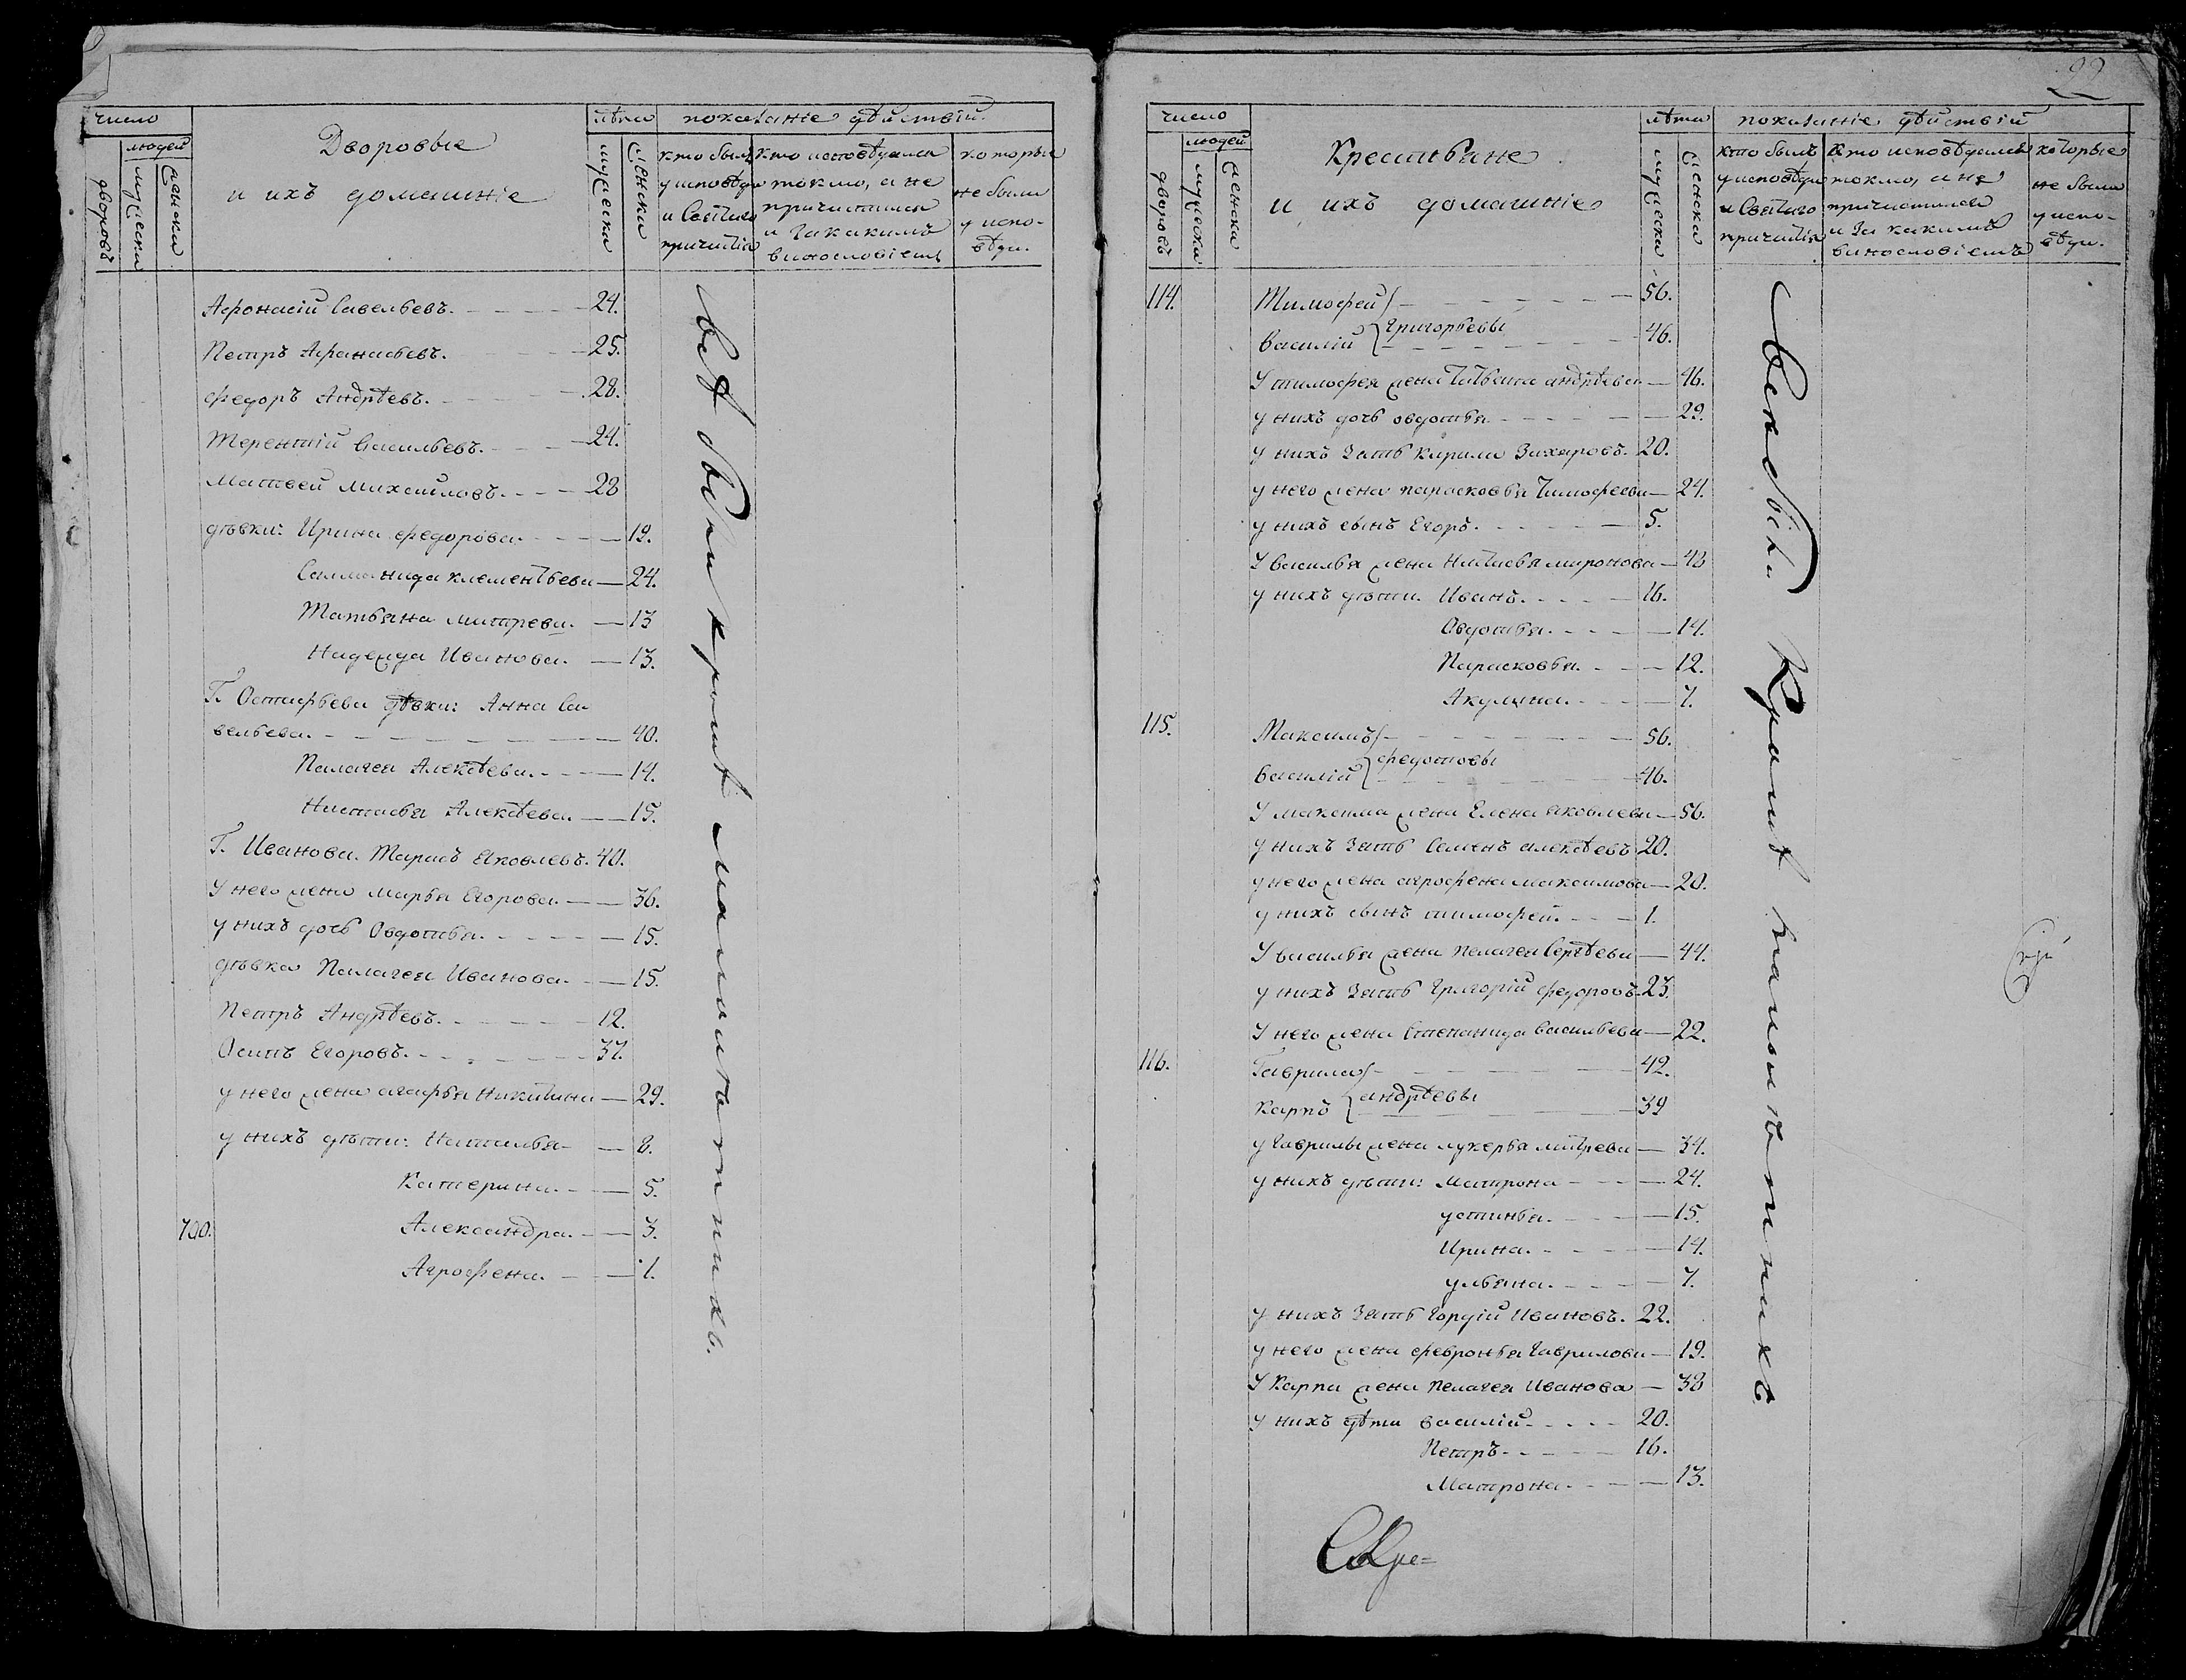 число
людей
дворовъ
мужеска
женска
Дворовые
и ихъ домашніе
лѣта
мужеска
женска
показаніе дѣйствій.
кто былъ
у исповѣди
и Святаго
причастія
кто исповѣдался
токмо, а не
причастился
и за какимъ
винословіемъ
которые
не были
у испо-
вѣди.
Афонасій Савельевъ. 24.
Петръ Афанасьевъ. 25.
Федоръ Андрѣевъ. 28.
Терентій Васильевъ. 24.
Матвей Михайловъ. 28
дѣвки: Ирина Федорова. 19.
Саламанида Клементьева 24.
Татьяна Митрева. 13
Надежда Иванова. 13.
Г. Остафьева дѣвки: Анна Са
вельева. 40.
Палагея Алексѣева. 14.
Настасья Алексѣева. 15.
Г. Иванова. Тарасъ Яковлевъ. 40.
У него жена Марья Егорова. 36.
у нихъ дочь Овдотья. 15.
дѣвка Палагея Иванова. 15.
Петръ Андрѣевъ. 12.
Осипъ Егоровъ. 37.
у него жена Агафья Никитина 29.
у нихъ дѣти: Наталья 8.
Катерина. 5.
700. Александра. 3.
Агрофена. 1.
всѣ были кромѣ малолѣтнихъ.
22
число
людей
дворовъ
мужеска
женска
Крестьяне
и ихъ домашніе
лѣта
мужеска
женска
показаніе дѣйствій
кто былъ
у исповѣди
и Святаго
причастія
кто исповѣдался
токмо, а не
причастился
и за какимъ
винословіемъ
которые
не были
у испо-
вѣди.
114. Тимофей 56.
Григорьевы
Василій 46.
У Тимофея жена Татьяна Андрѣева 46.
у нихъ дочь Овдотья 29.
у нихъ зять Кирила Захаровъ. 20.
у него жена Парасковья Тимофеева 24.
у нихъ сынъ Егоръ. 5.
У Василья жена Настасья Миронова 48
у нихъ дѣти. Иванъ. 16.
Овдотья. 14.
Парасковья. 12.
Акулина. 7.
115. Максимъ 56.
Федотовы
Василій 46.
У Максима жена Елена Яковлева 56.
у нихъ зять Семенъ Алексѣевъ 20.
у него жена Агрофена Максимова 20.
у нихъ сынъ Тимофей. 1.
У Василья жена Пелагея Сергѣева 44.
у нихъ зять Григорій Федоровъ 23.
У него жена Степанида Васильева 22.
116. Гаврила 42.
Андрѣевы
Карпъ 39
у Гаврилы жена Лукерья Митрева 34.
у нихъ дѣти: Матрона 24.
Устинья. 15.
Ирина. 14.
Ульяна. 7.
у нихъ зять Гордій Ивановъ. 22.
у него жена Февронья Гаврилова 19.
У Карпа жена Пелагея Иванова 38
у нихъ дѣти Василій 20.
Петръ 16.
Матрона. 13.
всѣ были кромѣ малолѣтнихъ.